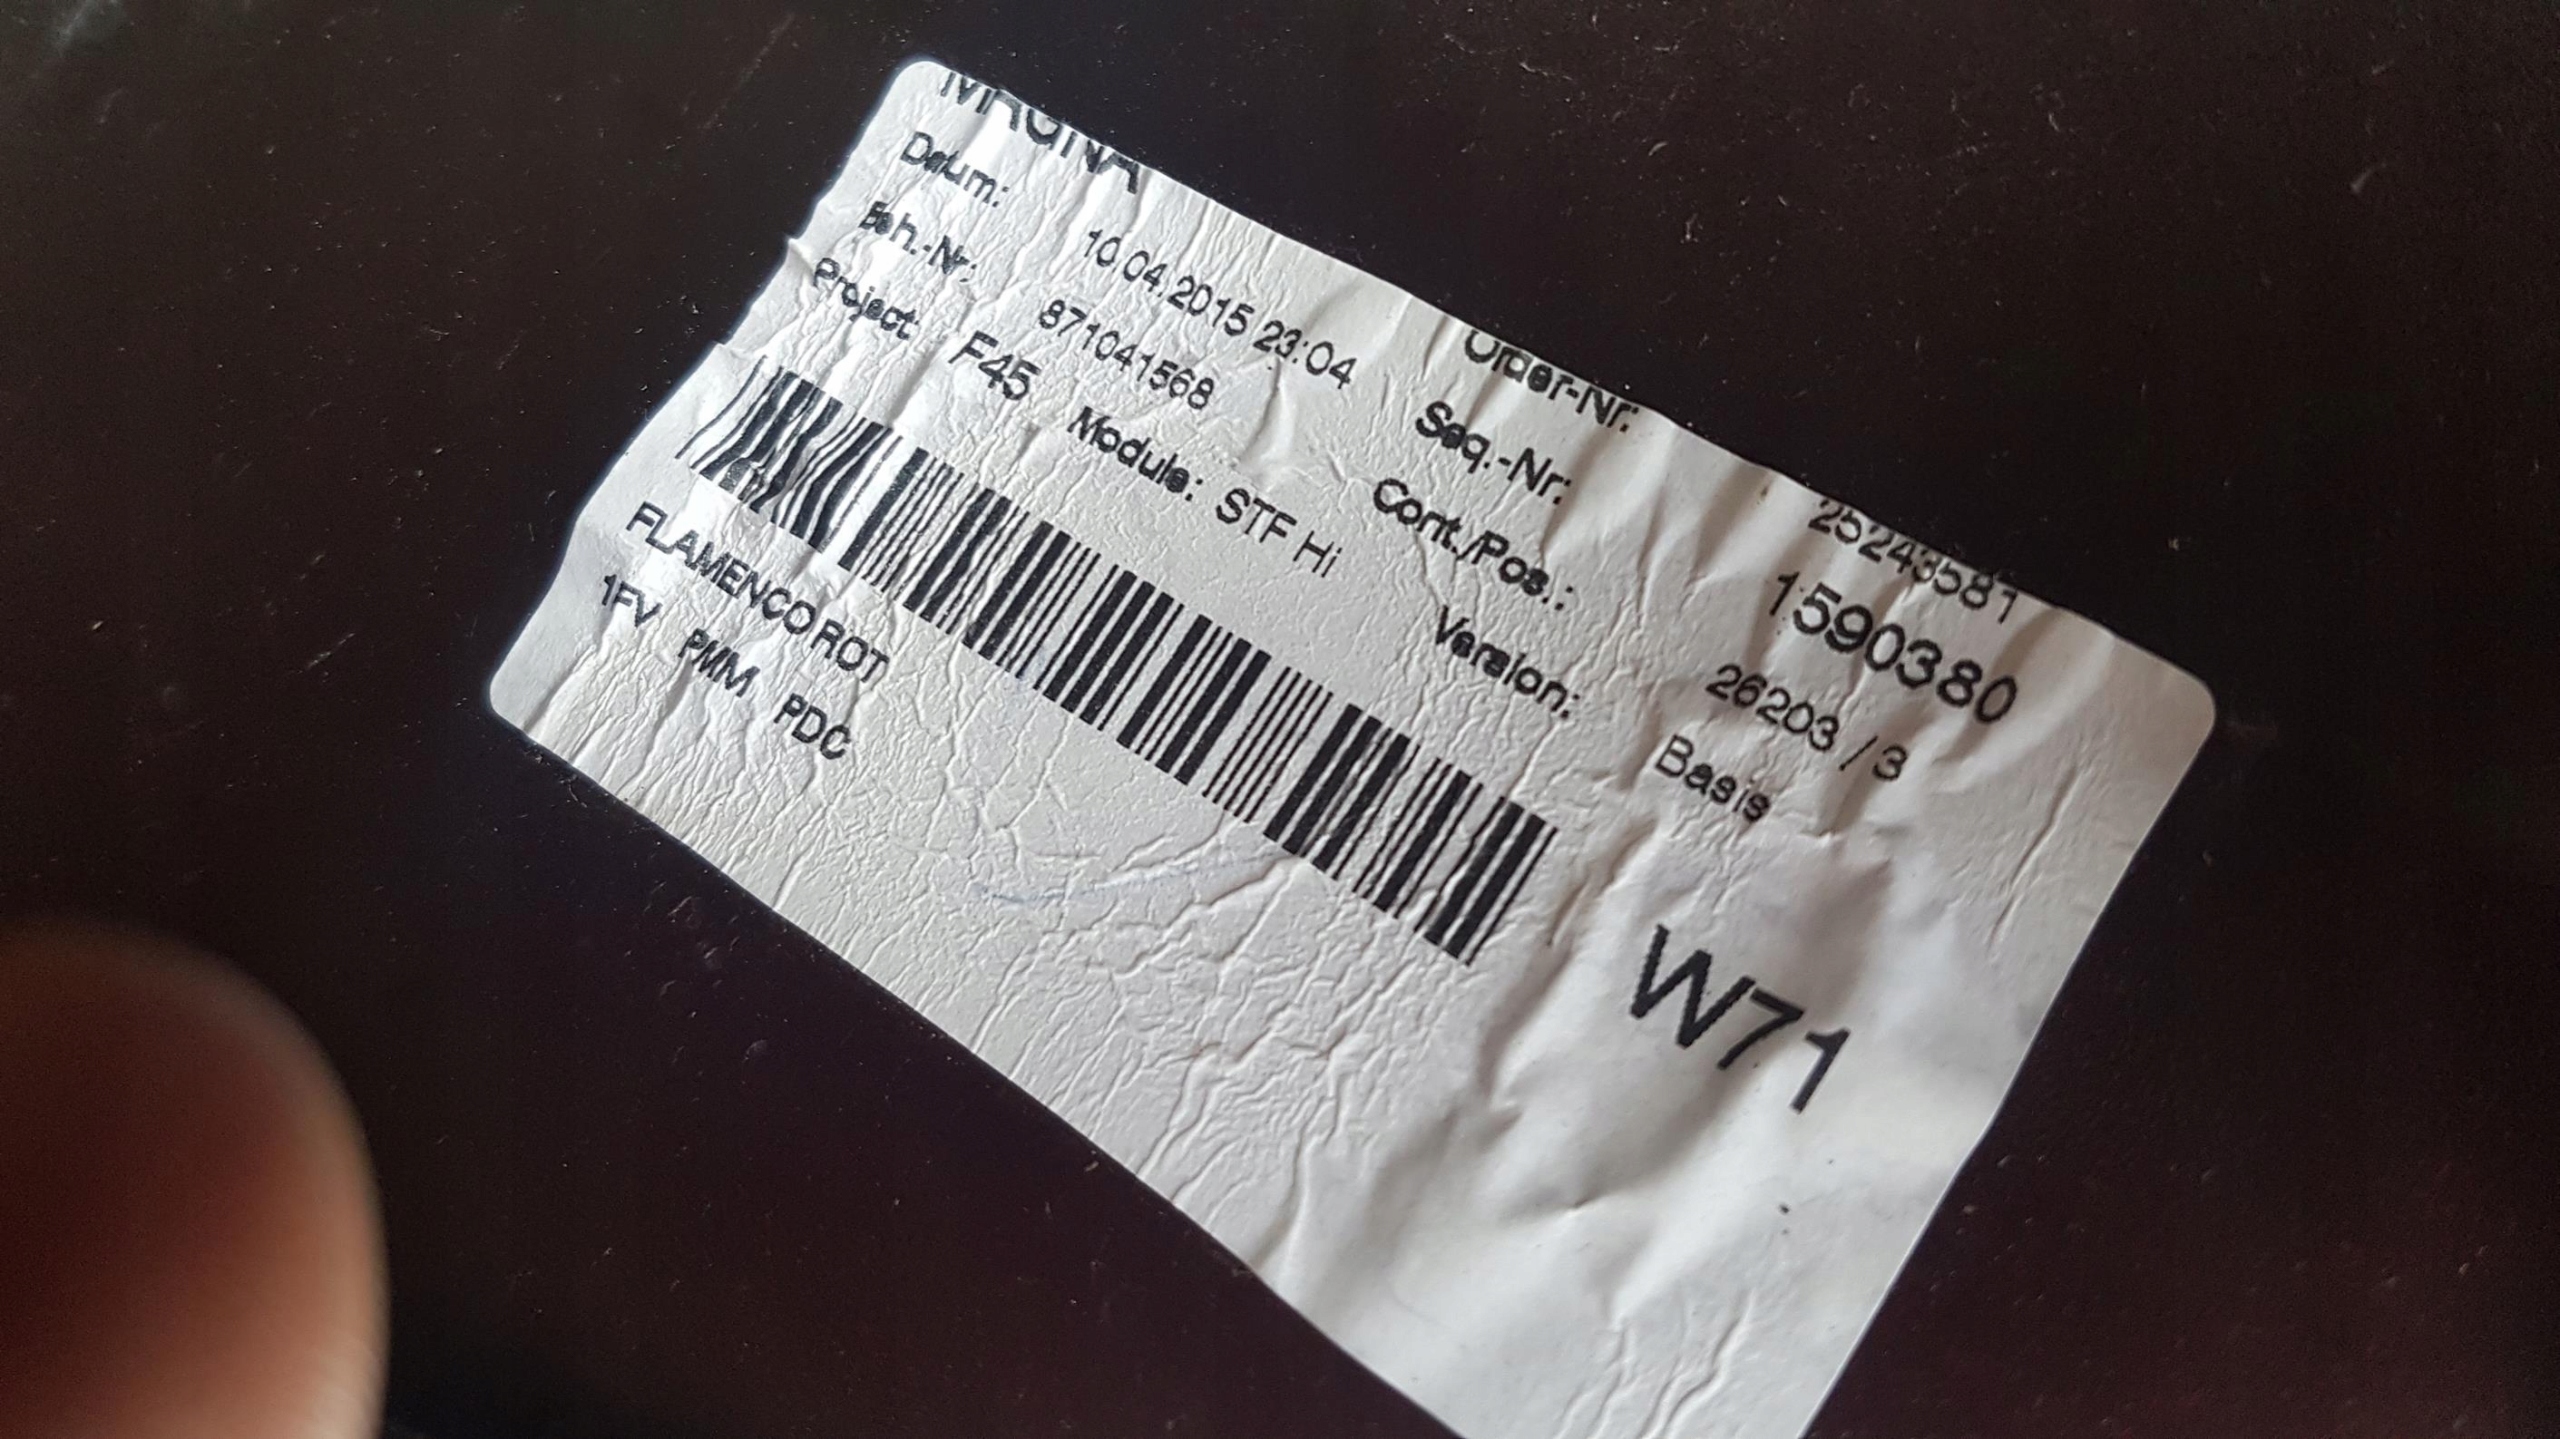 MAGNA
Datum: 10.04.2015 23:04 Order-Nr: 25243581
Beh.-Nr: 871041568 Seq.-Nr: 1590380
Project: F45 Module: STF Hi Cont./Pos.: 26203 / 3
Version: Basis
FLAMENCOROT
1FV PMM PDC
W71